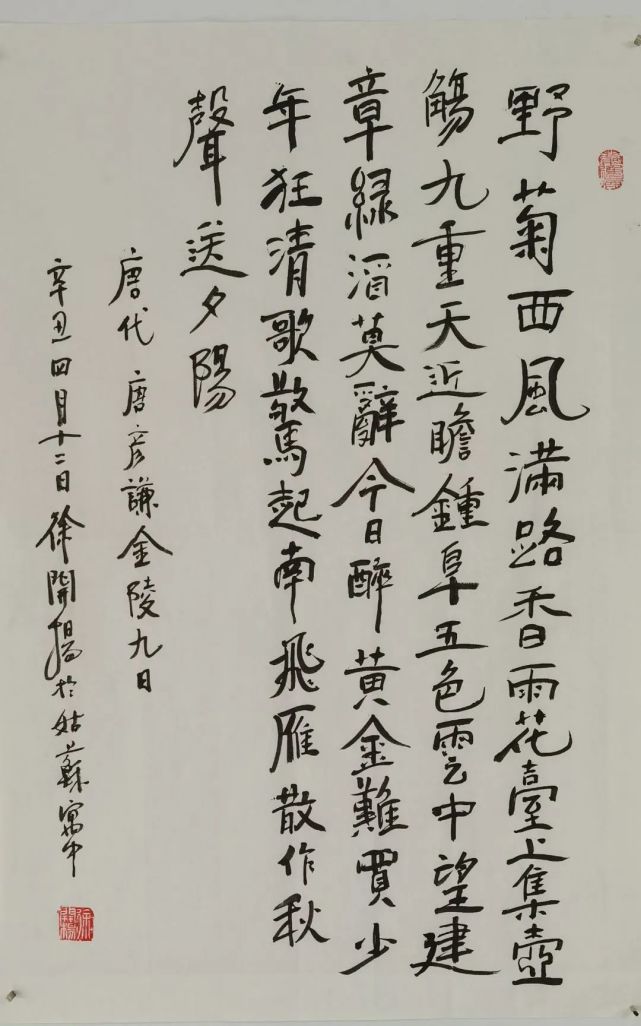 野菊西風滿路香雨花臺上集壺
觴九重天近瞻鍾阜五色雲中望建
章綠酒莫辭今日醉黃金難買少
年狂清歌驚起南飛雁散作秋
聲送夕陽
唐代 唐彥謙金陵九日
辛丑四月十二日徐開揚於姑蘇寓中